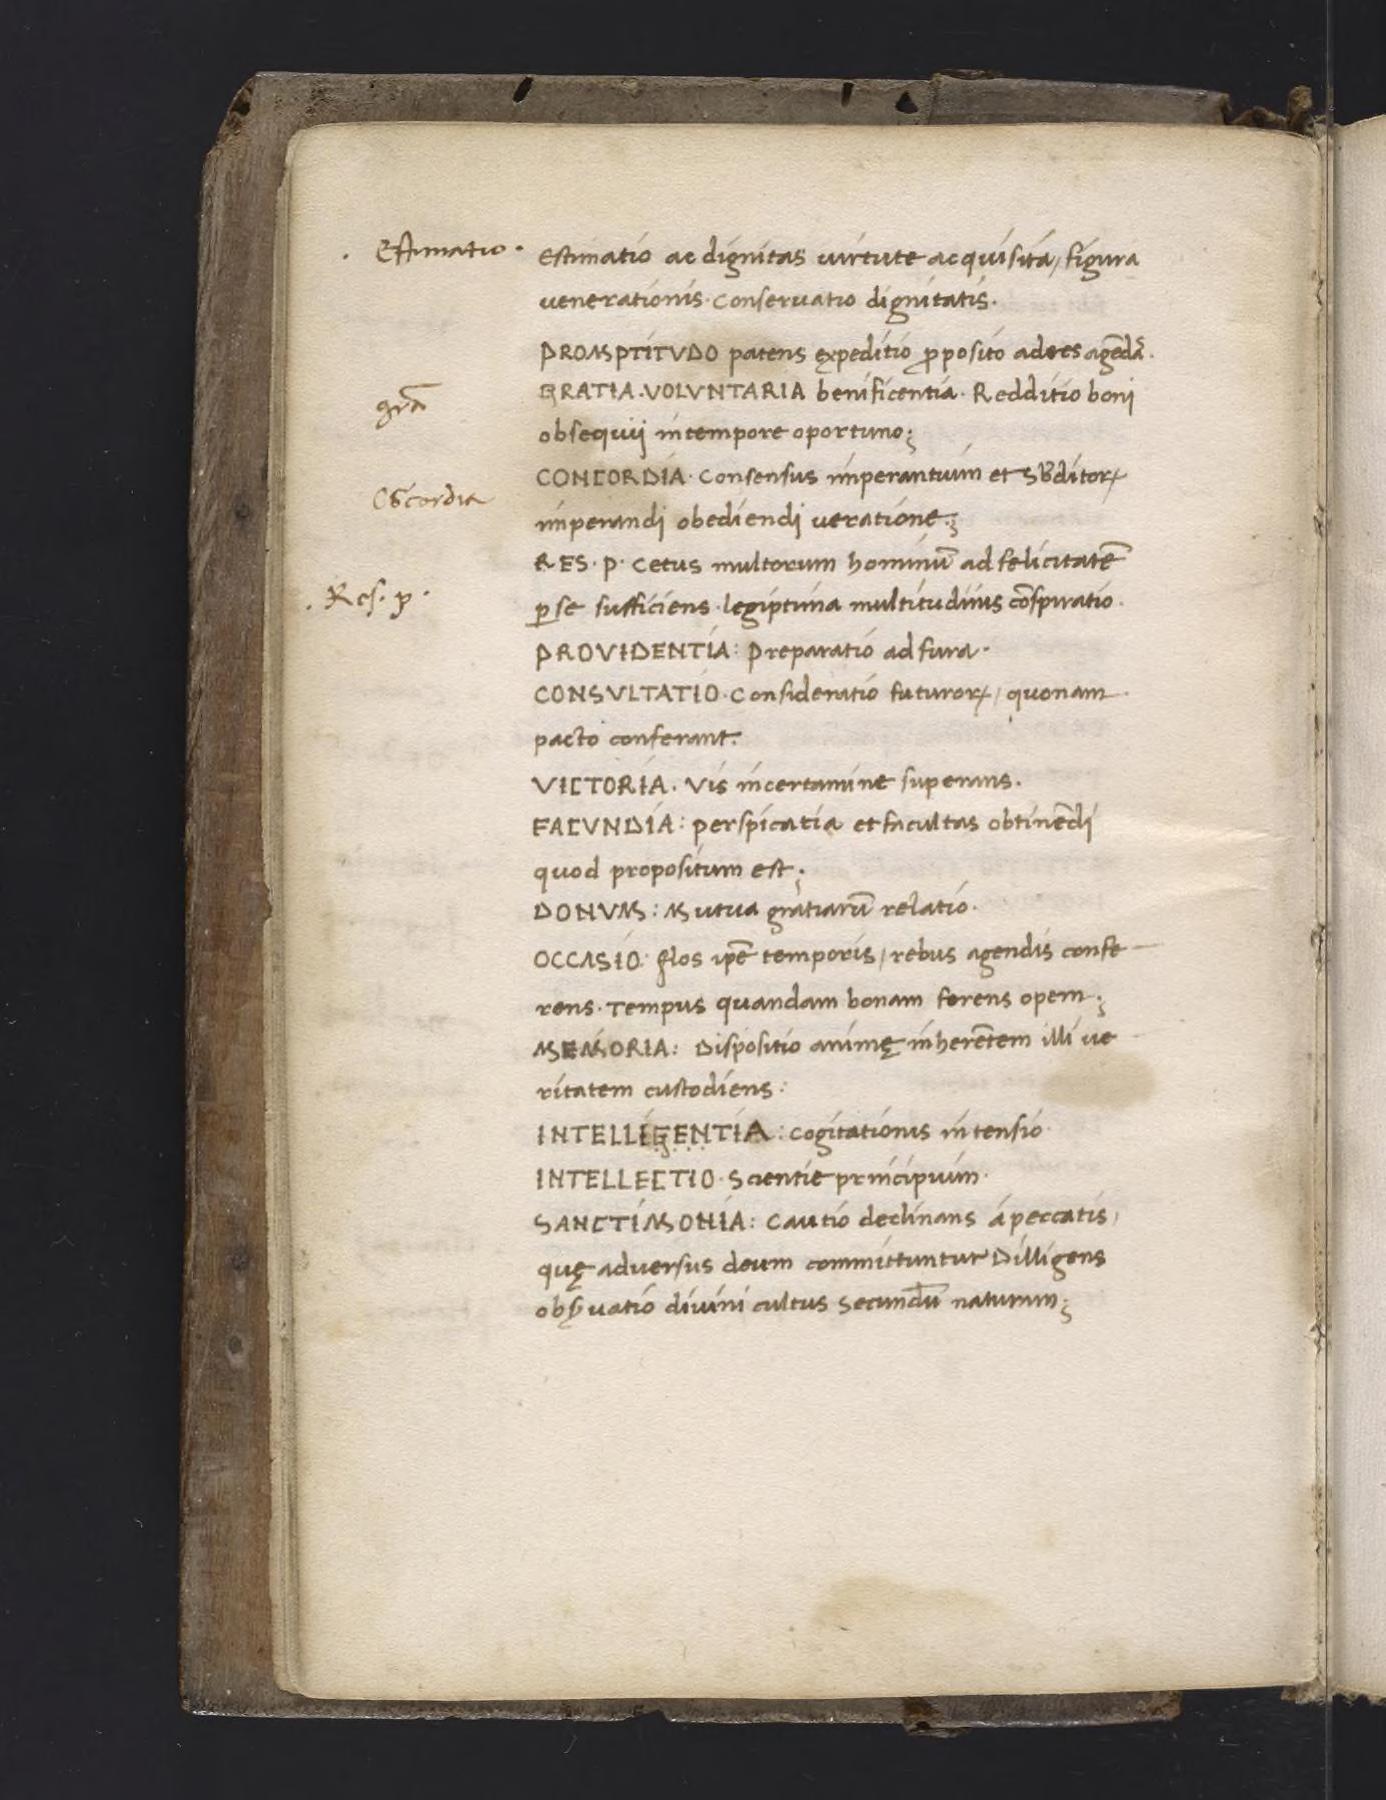 . Estimatio .
Estimatio ac dignitas uirtute acquisita, figura
uenerationis. Conseruatio dignitatis.
PROMPTITVDO patens expeditio ꝓposito ad res agẽdã.
gr̃a
GRATIA. VOLVNTARIA benificentia. Redditio boni
obsequij in tempore oportuno;
Cõcordia
CONCORDIA. Consensus imperantium et sb̃ditoꝝ
imperandi obediendi ue ratione.;
RES. P. Cetus multorum hominũ ad felicitatẽ
. Res. p .
ꝑ se sufficiens. legiptima multitudinis cõspiratio.
PROVIDENTIA: Preparatio ad fura.
CONSVLTATIO. Consideratio futuroꝝ, quonam
pacto conferant.
VICTORIA. Vis in certamine superans.
FACVNDIA: perspicatia et facultas obtinẽdi
quod propositum est;
DONVM: Mutua gratiarũ relatio.
OCCASIO: flos ip̃e temporis, rebus agendis confe
rens. Tempus quandam bonam ferens opem;
MEMORIA: Dispositio animę inherẽtem illi ue
ritatem custodiens:
INTELLIGENTIA: Cogitationis intensio
INTELLECTIO. Scientie principium.
SANCTIMONIA: Cautio declinans á peccatis,
quę aduersus deum committuntur Dilligens
obẜuatio diuini cultus secundũ naturam;